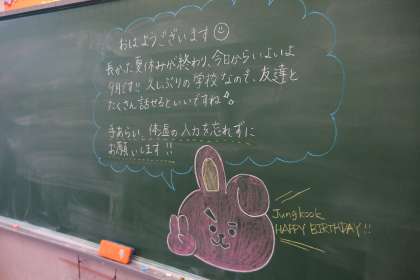 おはようございます
長かった夏休みが終わり、今日からいよいよ
9月です!! 久しぶりの学校なので、友達と
たくさん話せるといいですね。
手あらい、体温の入力を忘れずに
お願いします!!
Jungkook
HAPPY BIRTHDAY!!